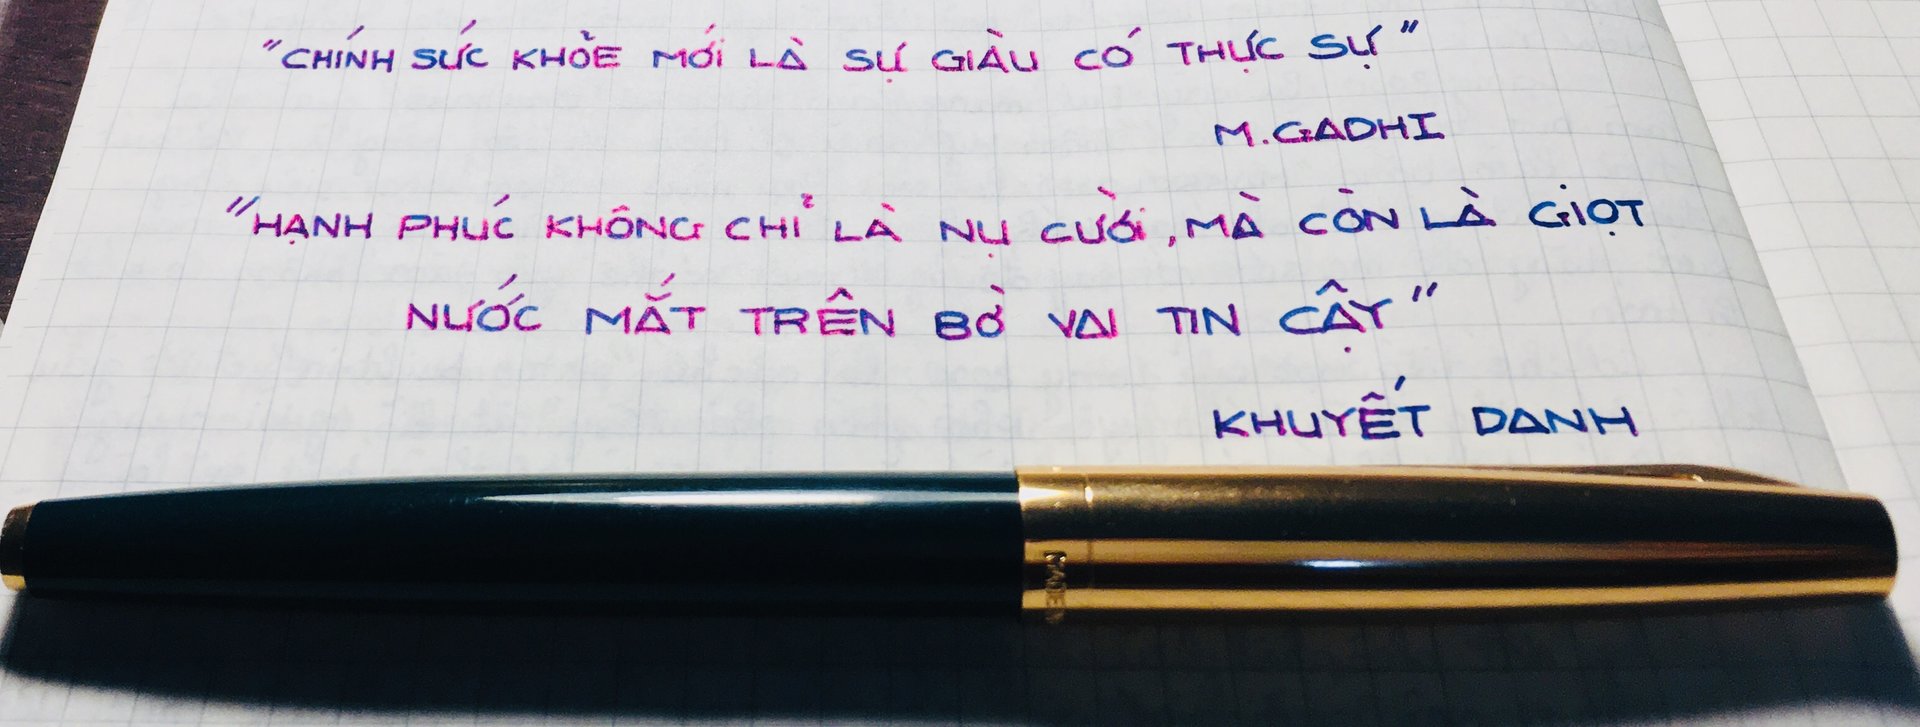 "CHÍNH SỨC KHỎE MỚI LÀ SỰ GIÀU CÓ THỰC SỰ"
M.GADHI
"HẠNH PHÚC KHÔNG CHỈ LÀ NỤ CƯỜI, MÀ CÒN LÀ GIỌT
NƯỚC MẮT TRÊN BỜ VAI TIN CẬY"
KHUYẾT DANH